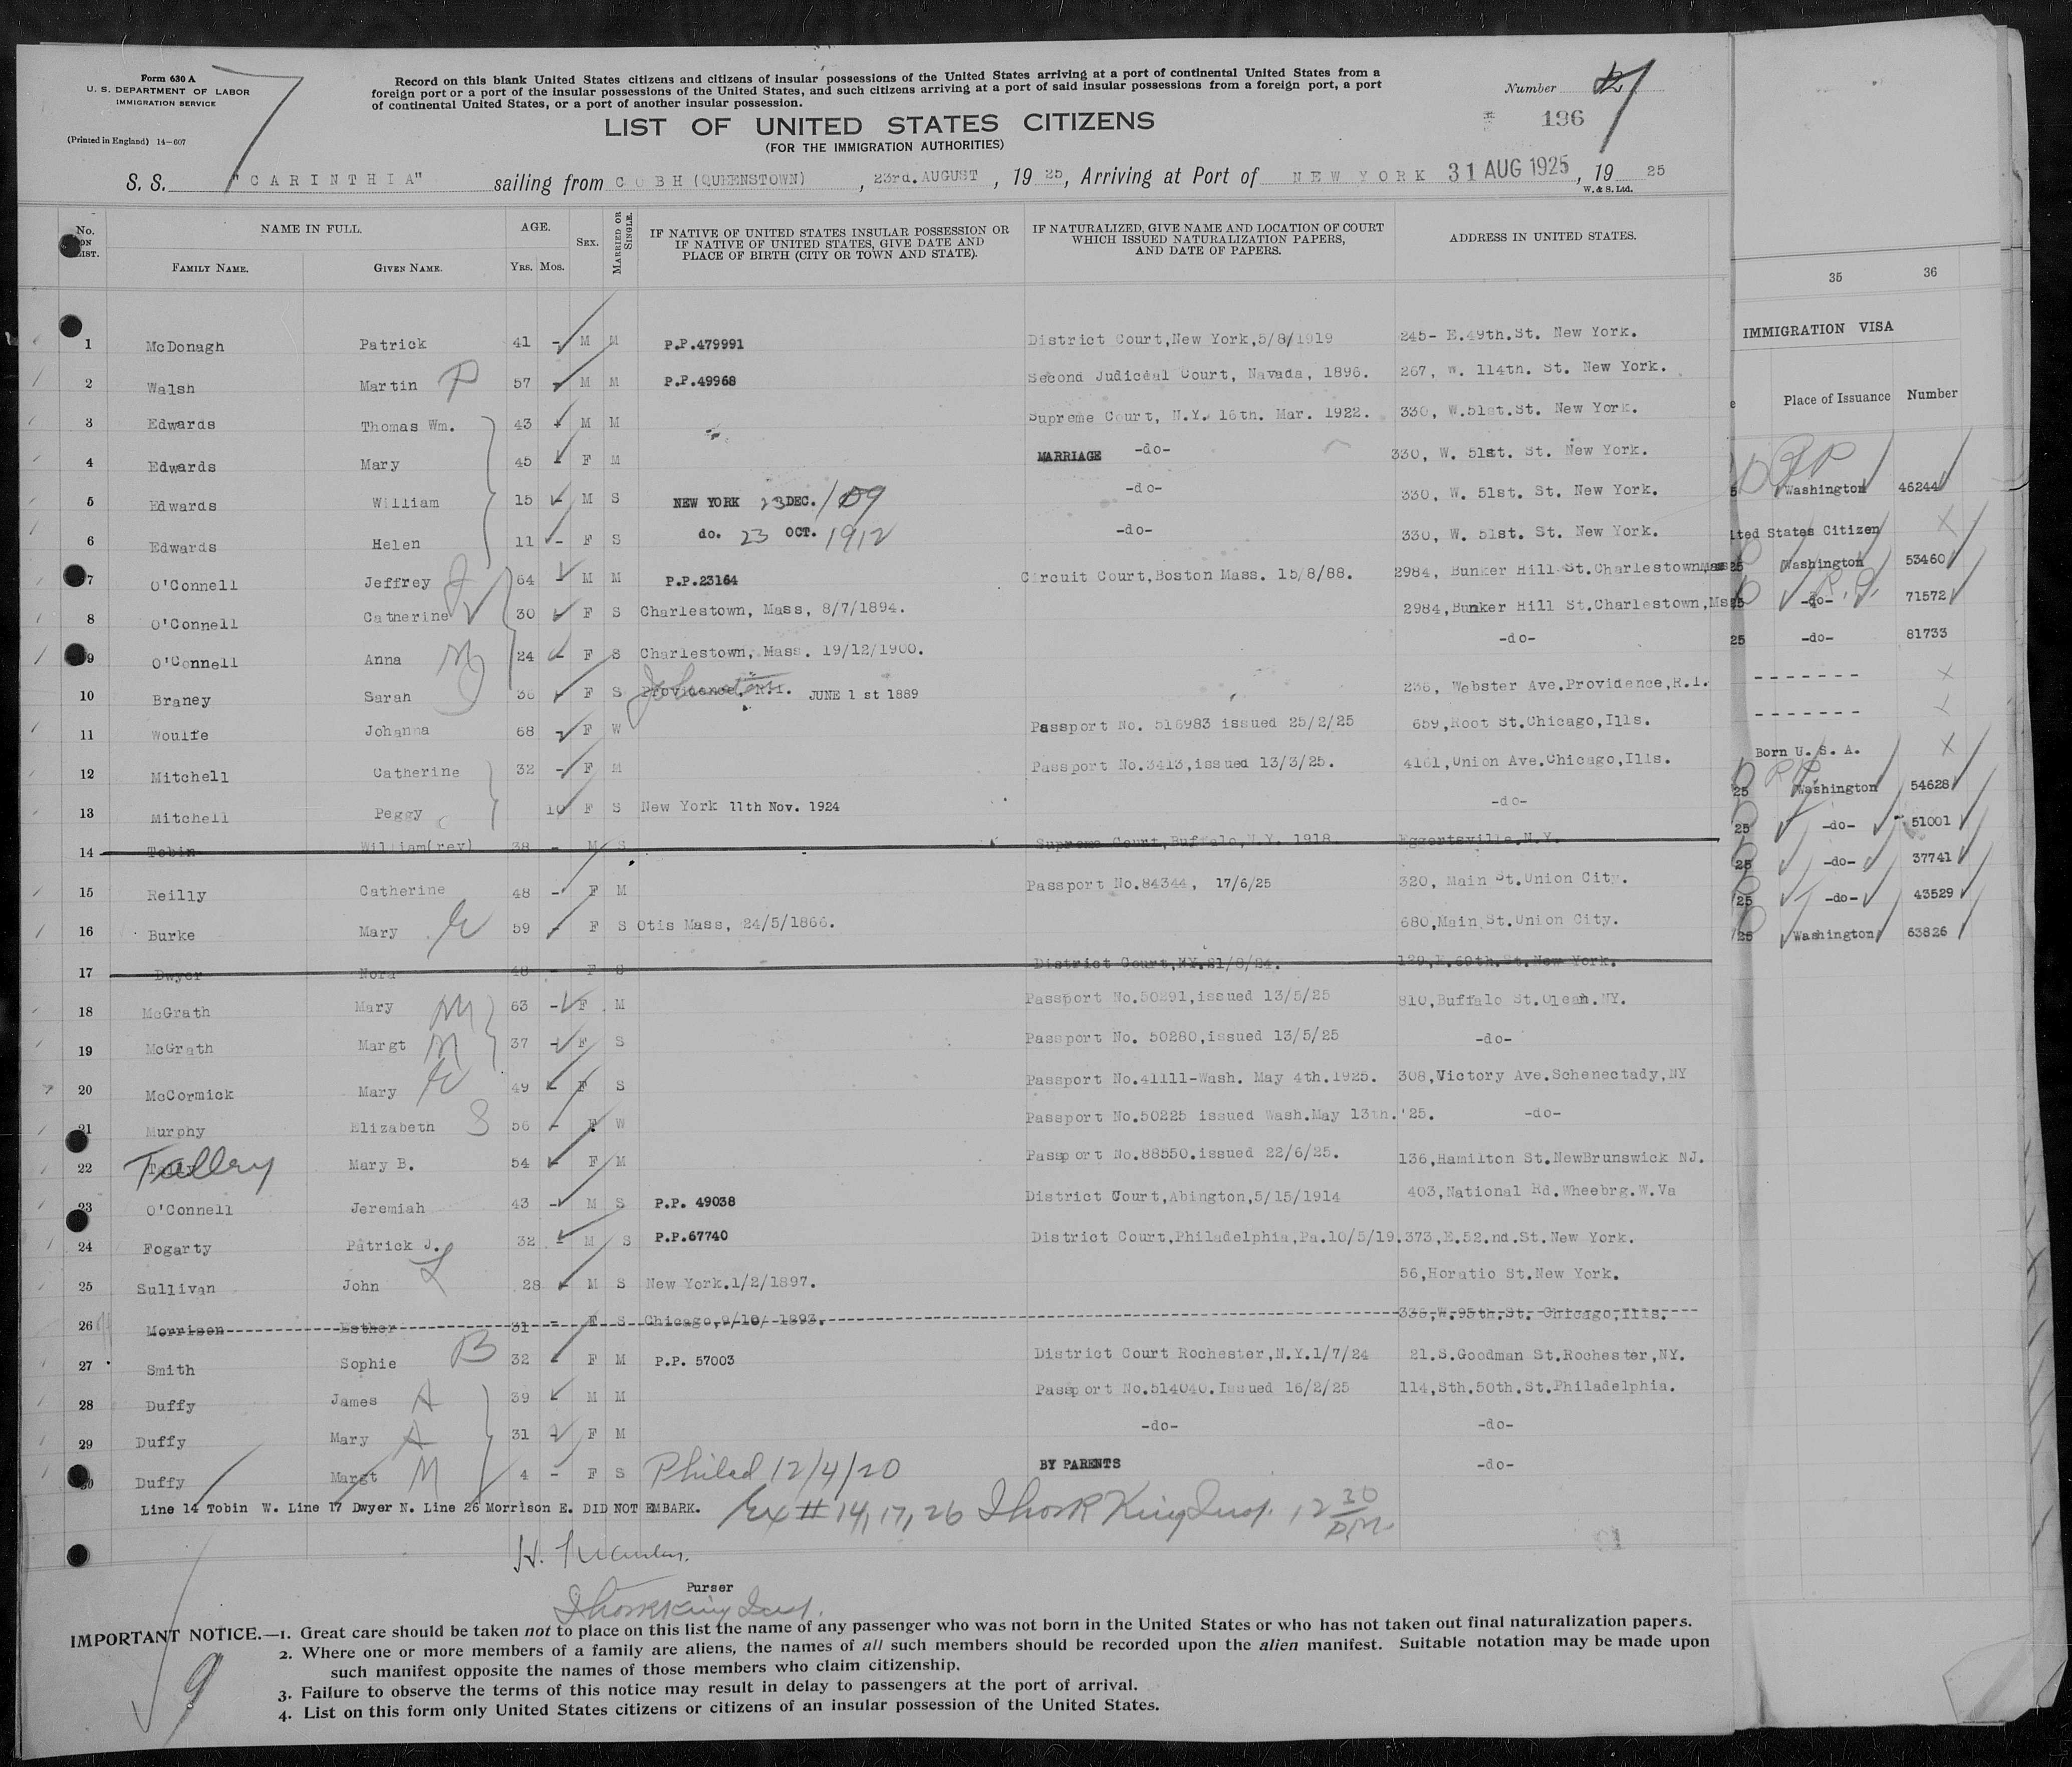 Form 630 A
U. S. DEPARTMENT OF LABOR
IMMIGRATION SERVICE
(Printed in England) 14-607
Record on this blank United States citizens and citizens of insular possessions of the United States arriving at a port of continental United States from a
foreign port or a port of the insular possessions of the United States, and such citizens arriving at a port of said insular possessions from a foreign port, a port
of continental United States, or a port of another insular possession.
LIST OF UNITED STATES CITIZENS
(FOR THE IMMIGRATION AUTHORITIES)
Number
196
S. S. "CARINTHIA" sailing from COBH (QUEENSTOWN), 23rd. AUGUST, 19 25, Arriving at Port of NEW YORK 31 AUG 1925, 19 25
W. & S. Ltd.
No. ON LIST. NAME IN FULL. FAMILY NAME. GIVEN NAME. AGE. YRS. MOS. SEX. MARRIED OR SINGLE. IF NATIVE OF UNITED STATES INSULAR POSSESSION OR IF NATIVE OF UNITED STATES, GIVE DATE AND PLACE OF BIRTH (CITY OR TOWN AND STATE). IF NATURALIZED, GIVE NAME AND LOCATION OF COURT WHICH ISSUED NATURALIZATION PAPERS, AND DATE OF PAPERS. ADDRESS IN UNITED STATES.
1 McDonagh Patrick 41 - M M P.P.479991 District Court,New York,5/8/1919 245- E.49th.St. New York.
2 Walsh Martin P 57 - M M P.P.49968 Second Judicéal Court, Navada, 1896. 267, W. 114th. St. New York.
3 Edwards Thomas Wm. 43 - M M Supreme Court, N.Y. 16th. Mar. 1922. 330, W.51st.St. New York.
4 Edwards Mary 45 - F M MARRIAGE -do- 330, W. 51st. St. New York.
5 Edwards William 15 - M S NEW YORK 23 DEC. /09 -do- 330, W. 51st. St. New York.
6 Edwards Helen 11 - F S do. 23 OCT. 1912 -do- 330, W. 51st. St. New York.
7 O'Connell Jeffrey J 64 - M M P.P.23164 Circuit Court,Boston Mass. 15/8/88. 2984, Bunker Hill St.Charlestown,Mass
8 O'Connell Catherine 30 - F S Charlestown, Mass, 8/7/1894. 2984,Bunker Hill St.Charlestown,Ms
9 O'Connell Anna M 24 - F S Charlestown, Mass. 19/12/1900. -do-
10 Braney Sarah 36 - F S Providence, R.I. Johnston JUNE 1 st 1889 236, Webster Ave.Providence,R.I.
11 Woulfe Johanna 68 - F W Passport No. 516983 issued 25/2/25 659,Root St.Chicago,Ills.
12 Mitchell Catherine 32 - F M Passport No.3413,issued 13/3/25. 4161,Union Ave.Chicago,Ills.
13 Mitchell Peggy 10 F S New York 11th Nov. 1924 -do-
14 Tobin William(rev) 38 - M S Supreme Court,Buffalo,N.Y. 1918 Eggertsville.N.Y.
15 Reilly Catherine 48 - F M Passport No.84344, 17/6/25 320, Main St.Union City.
16 Burke Mary 59 - F S Otis Mass, 24/5/1866. 680,Main St.Union City.
17 Dwyer Nora 48 - F S District Court,NY.21/8/24. 129,E.69th.St.New York.
18 McGrath Mary M 63 - F M Passport No.50291,issued 13/5/25 810,Buffalo St.Olean.NY.
19 McGrath Margt M 37 - F S Passport No. 50280,issued 13/5/25 -do-
20 McCormick Mary 49 - F S Passport No.41111-Wash. May 4th.1925. 308,Victory Ave.Schenectady,NY
21 Murphy Elizabeth S 56 - F W Passport No.50225 issued Wash.May 13th.'25. -do-
22 Talley Mary B. 54 - F M Passport No.88550.issued 22/6/25. 136,Hamilton St.NewBrunswick NJ.
23 O'Connell Jeremiah 43 - M S P.P. 49038 District Court,Abington,5/15/1914 403,National Rd.Wheebrg.W.Va
24 Fogarty Patrick J. 32 - M S P.P.67740 District Court,Philadelphia,Pa.10/5/19. 373,E.52.nd.St.New York.
25 Sullivan John L 28 - M S New York.1/2/1897. 56,Horatio St.New York.
26 Morrison Esther 31 - F S Chicago,9/10/ 1893. 336,W.95th.St. Chicago,Ills.
27 Smith Sophie B 32 - F M P.P. 57003 District Court Rochester,N.Y.1/7/24 21.S.Goodman St.Rochester,NY.
28 Duffy James A 39 - M M Passport No.514040.Issued 16/2/25 114,Sth.50th.St.Philadelphia.
29 Duffy Mary A 31 - F M -do- -do-
30 Duffy Margt M 4 - F S Philad 12/4/20 BY PARENTS -do-
Line 14 Tobin W. Line 17 Dwyer N. Line 26 Morrison E. DID NOT EMBARK.
Ex # 14, 17, 26 King Insp. 12 30 P.M.
H.
Purser
King Insp.
IMPORTANT NOTICE.—1. Great care should be taken not to place on this list the name of any passenger who was not born in the United States or who has not taken out final naturalization papers.
2. Where one or more members of a family are aliens, the names of all such members should be recorded upon the alien manifest. Suitable notation may be made upon
such manifest opposite the names of those members who claim citizenship.
3. Failure to observe the terms of this notice may result in delay to passengers at the port of arrival.
4. List on this form only United States citizens or citizens of an insular possession of the United States.
9
35 36
IMMIGRATION VISA
Place of Issuance Number
Washington 46244
ited States Citizen
25 Washington 53460
25 -do- 71572
25 -do- 81733
- - - - - - -
- - - - - - -
Born U. S. A.
25 Washington 54628
25 -do- 51001
25 -do- 37741
25 -do- 43529
25 Washington 63826